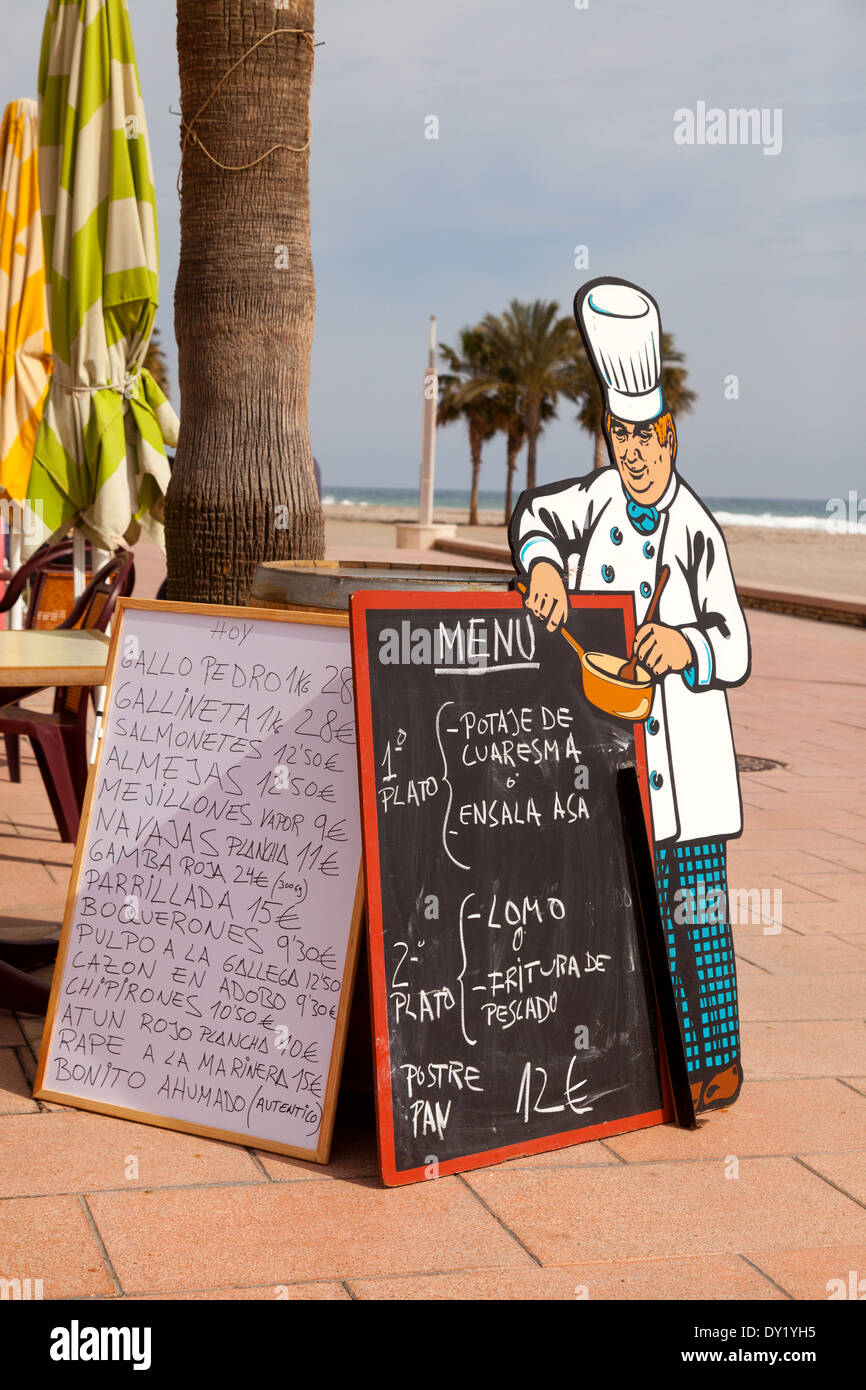 HOY
GALLO PEDRO 1KG 28
GALLINETA 1KG 28€
SALMONETES 12'50€
ALMEJAS 12'50€
MEJILLONES VAPOR 9€
NAVAJAS PLANCHA 11€
GAMBA ROJA 24€ (300G)
PARRILLADA 15€
BOQUERONES 9'30€
PULPO A LA GALLEGA 12'50
CAZON EN ADOBO 9'30€
CHIPIRONES 10'50€
ATUN ROJO PLANCHA 10€
RAPE A LA MARINERA 15€
BONITO AHUMADO (AUTENTICO)
MENU
1º PLATO
- POTAJE DE
CUARESMA
ó
- ENSALA ASA
2º PLATO
- LOMO
ó
- FRITURA DE
PESCADO
POSTRE
PAN
12€
alamy
Image ID: DY1YH5
www.alamy.com